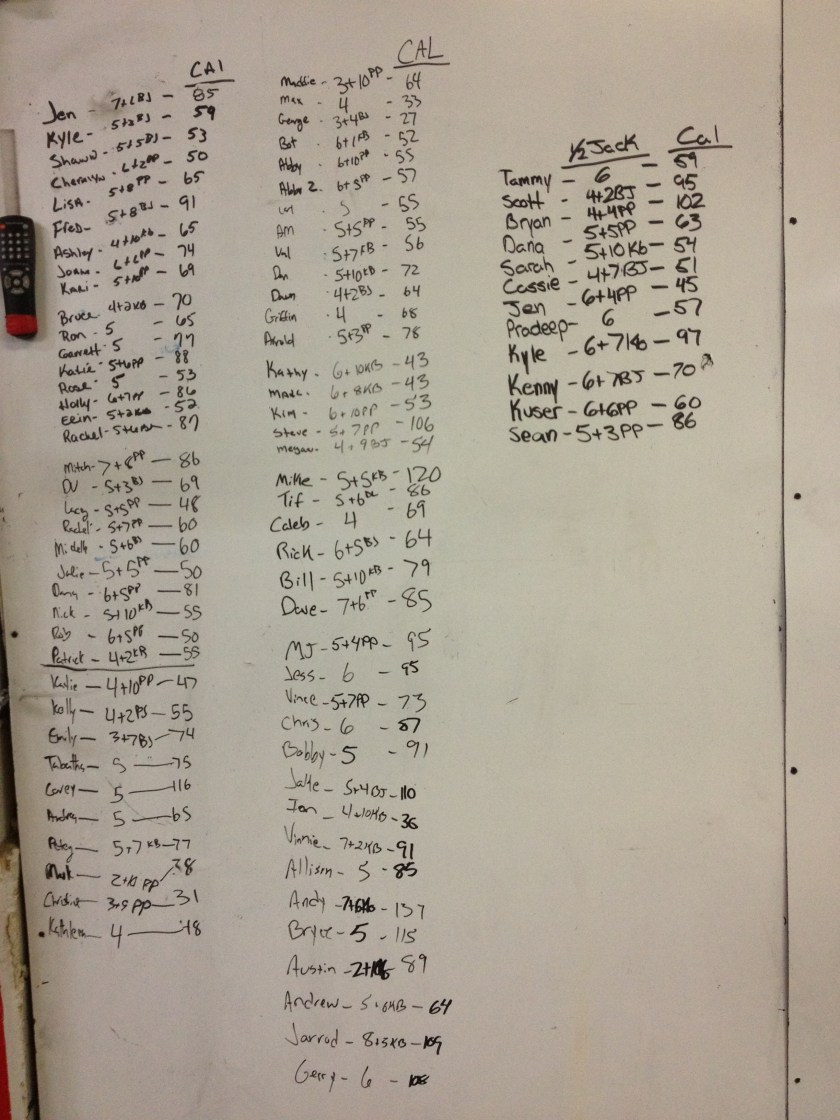 CAl
Jen - 7+6BJ - 85
Kyle - 5+2BJ - 59
Shawn - 5+5BJ - 53
Cheralyn - 6+2PP - 50
LISA - 5+8PP - 65
FReD - 5+8BJ - 91
Ashley - 4+10Kb - 65
Joann - 6+6PP - 74
Kari - 5+10PP - 69
Bruce 4+2KB - 70
Ron - 5 - 65
Garrett - 5 - 77
Katie - 5+6PP - 88
Rose - 5 - 53
Holly - 6+7PP - 86
Erin - 5+2KB - 52
Rachel - 5+6BJ - 87
Mitch - 7+8PP - 86
DU - 5+3BJ - 69
Lucy - 5+5PP - 48
Rachel - 5+7PP - 60
Michelle - 5+6BJ - 60
Julie - 5+5PP - 50
Dana - 6+5PP - 81
Nick - 5+10KB - 55
Rob - 6+5PP - 50
Patrick - 4+2KB - 55
Katie - 4+10PP - 47
Kelly - 4+2BJ - 55
Emily - 3+7BJ - 74
Tabatha - 5 - 75
Corey - 5 - 116
Andrea - 5 - 65
Patsy - 5+7KB - 77
Mark - PP 78
Christine - 3+9PP - 31
Kathleen - 4 - 48
CAL
Maddie - 3+10PP - 64
Max - 4 - 33
George - 3+4BJ - 27
Bot - 6+1KB - 52
Abby - 6+10PP - 55
Abbie 2. 6+5PP - 57
5 - 55
AM - 5+5PP - 55
Val - 5+7KB - 56
Dan - 5+10KB - 72
Dawn - 4+2BJ - 64
Griffin - 4 - 68
Arnold - 5+3PP - 78
Kathy - 6+10KB - 43
Marc - 6+8KB - 43
Kim - 6+10PP - 53
Steve - 5+7PP - 106
Megan - 4+9BJ - 54
Mike - 5+5KB - 120
Tif - 5+6 - 86
Caleb - 4 - 69
Rick - 6+5BJ - 64
Bill - 5+10KB - 79
Dave - 7+6PP - 85
MJ - 5+4PP - 95
Jess - 6 - 95
Vince - 5+7PP - 73
Chris - 6 - 87
Bobby - 5 - 91
Jake - 5+4BJ - 110
Ian - 4+10KB - 36
Vinnie - 7+2KB - 91
Allison - 5 - 85
Andy - 7+6Kb - 137
Bryce - 5 - 115
Austin - 89
Andrew - 5+6KB - 64
Jarrod - 8+5KB - 109
Gerry - 6 - 108
1/2 Jack Cal
Tammy - 6 - 59
Scott - 4+2BJ - 95
Bryan - 4+4PP - 102
Dana - 5+5PP - 63
Sarah - 5+10Kb - 54
Cassie - 4+7BJ - 51
Jen - 6+4PP - 45
Pradeep - 6 - 57
Kyle - 6+7Kb - 97
Kenny - 6+7BJ - 70
Kuser - 6+6PP - 60
Sean - 5+3PP - 86